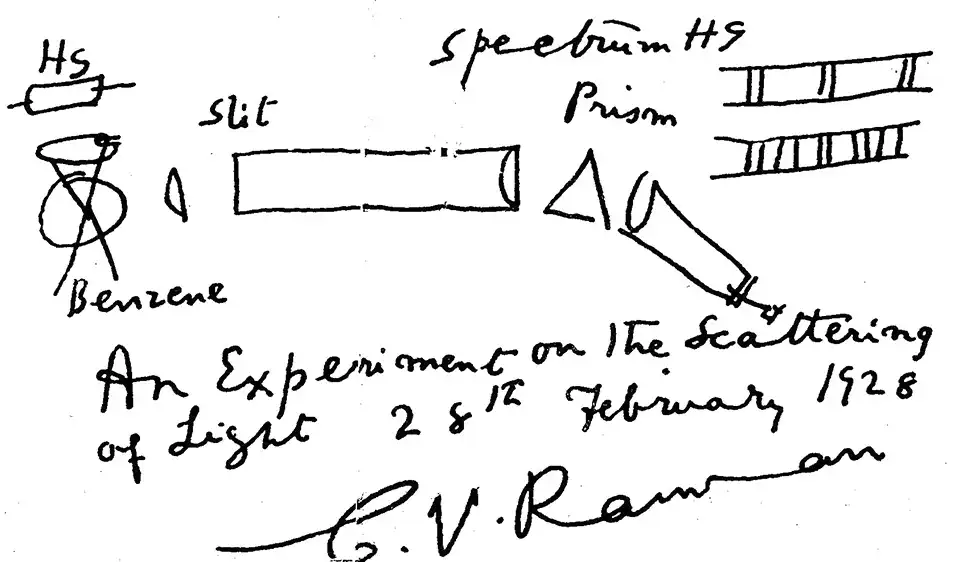 Spectrum Hg
Hg
Slit
Prism
Benzene
An Experiment on the Scattering
of Light 28th February 1928
C. V. Raman